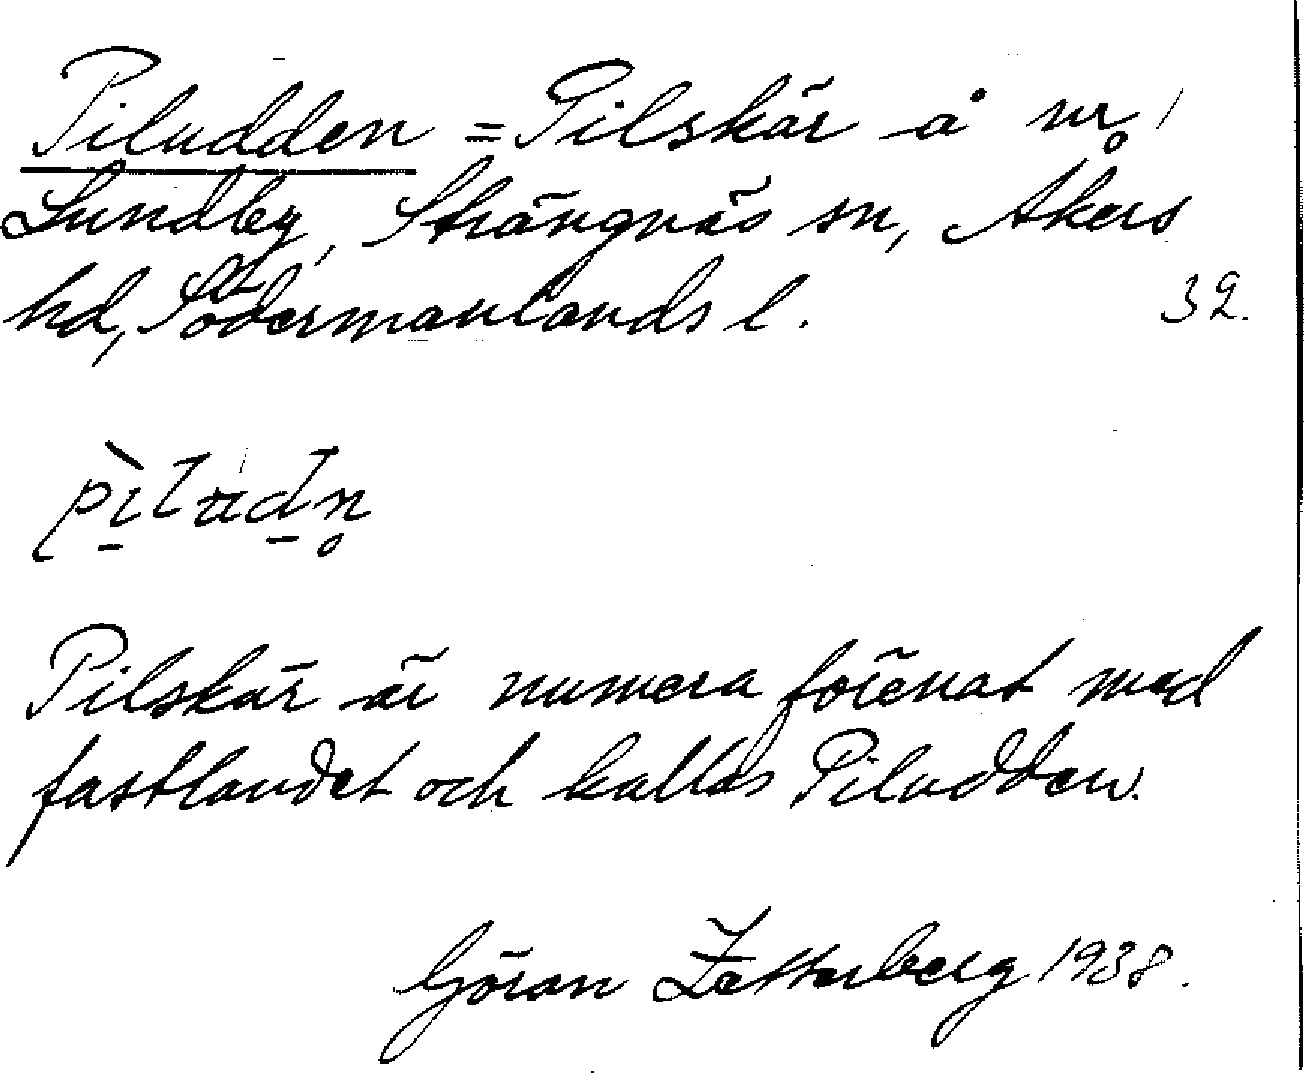 Piludden = Pilskär å nr 1
Lundby, Strängnäs sn, Åkers
hd, Södermanlands l. 32.
pìludn̥
Pilskär är numera förenat med
fastlandet och kallas Piludden.
Göran Zetterberg 1938.